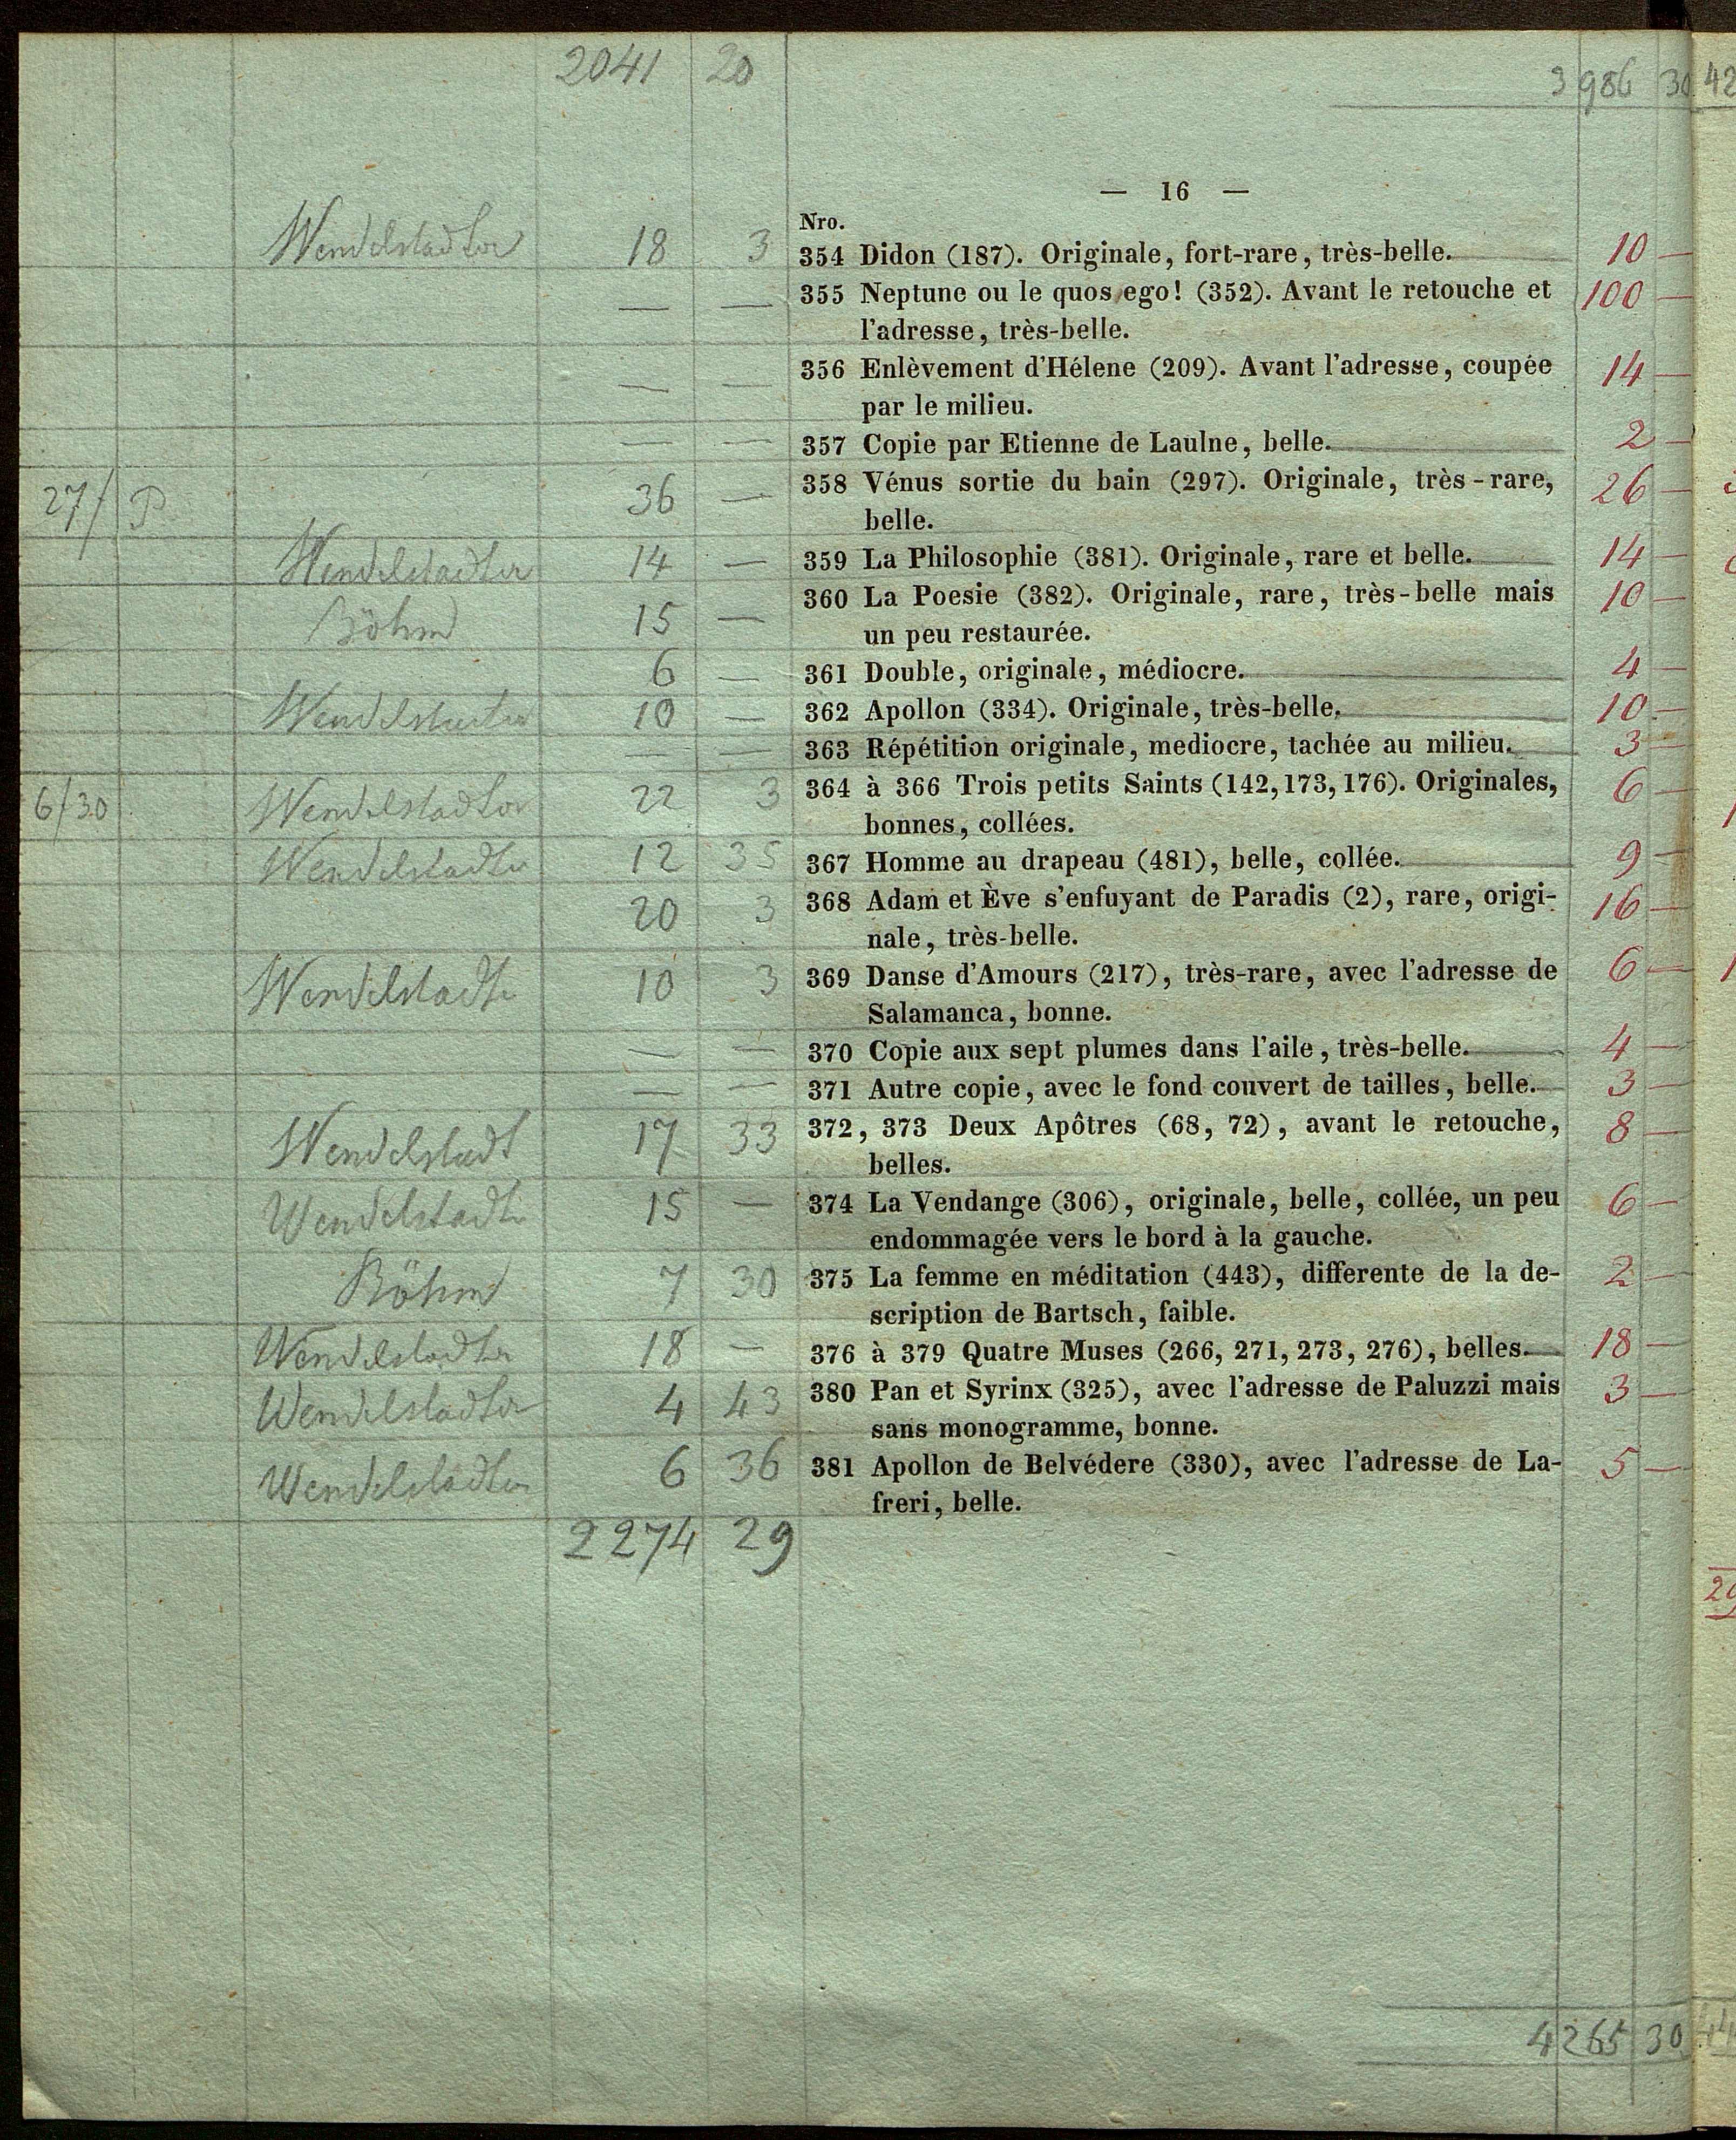 2041 20 3 986 30 42
— 16 —
Nro.
Wendelstadter 18 3 354 Didon (187). Originale, fort-rare, très-belle. 10 —
— — 355 Neptune ou le quos ego! (352). Avant le retouche et 100 —
l'adresse, très-belle.
— — 356 Enlèvement d'Hélene (209). Avant l'adresse, coupée 14 —
par le milieu.
— — 357 Copie par Etienne de Laulne, belle. 2 —
27/ P 36 — 358 Vénus sortie du bain (297). Originale, très-rare, 26 —
belle.
Wendelstadter 14 — 359 La Philosophie (381). Originale, rare et belle. 14 —
Böhm 15 — 360 La Poesie (382). Originale, rare, très-belle mais 10 —
un peu restaurée.
6 — 361 Double, originale, médiocre. 4 —
10 — 362 Apollon (334). Originale, très-belle. 10 —
— — 363 Répétition originale, mediocre, tachée au milieu. 3 —
6/30 Wendelstadter 22 3 364 à 366 Trois petits Saints (142, 173, 176). Originales, 6 —
bonnes, collées.
Wendelstadter 12 35 367 Homme au drapeau (481), belle, collée. 9 —
20 3 368 Adam et Ève s'enfuyant de Paradis (2), rare, origi- 16 —
nale, très-belle.
Wendelstadte 10 3 369 Danse d'Amours (217), très-rare, avec l'adresse de 6 —
Salamanca, bonne.
— — 370 Copie aux sept plumes dans l'aile, très-belle. 4 —
— — 371 Autre copie, avec le fond couvert de tailles, belle. 3 —
Wendelstadt 17 33 372, 373 Deux Apôtres (68, 72), avant le retouche, 8 —
belles.
Wendelstadte 15 — 374 La Vendange (306), originale, belle, collée, un peu 6 —
endommagée vers le bord à la gauche.
Böhm 7 30 375 La femme en méditation (443), differente de la de- 2 —
scription de Bartsch, faible.
Wendelstadter 18 — 376 à 379 Quatre Muses (266, 271, 273, 276), belles. 18 —
Wendelstadter 4 43 380 Pan et Syrinx (325), avec l'adresse de Paluzzi mais 3 —
sans monogramme, bonne.
Wendelstadter 6 36 381 Apollon de Belvédere (330), avec l'adresse de La- 5 —
freri, belle.
2274 29
4 265 30